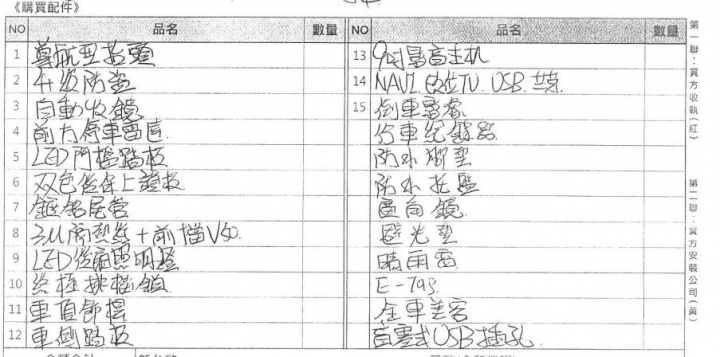 《購買配件》
NO 品名 數量 NO 品名 數量
1 導航型抬頭
2 升級防盜
3 自動收鏡
4 前方停車雷達
5 LED門檻踏板
6 双色後保上護板
7 鋁尾管
8 3M隔熱紙+前擋V60.
9 LED後廂照明
10 排檔鎖
11 車頂飾桿
12 車側踏板
13 9吋影音主机
14 NAVI. 數位TV. USB.
15 倒車雷
行車紀錄器
防水腳墊
防水托盤
鏡
避光墊
晴雨窗
E-793.
全車美容
百變式USB插孔.
第一聯：買方收執（紅）
第二聯：賣方安裝公司（黃）